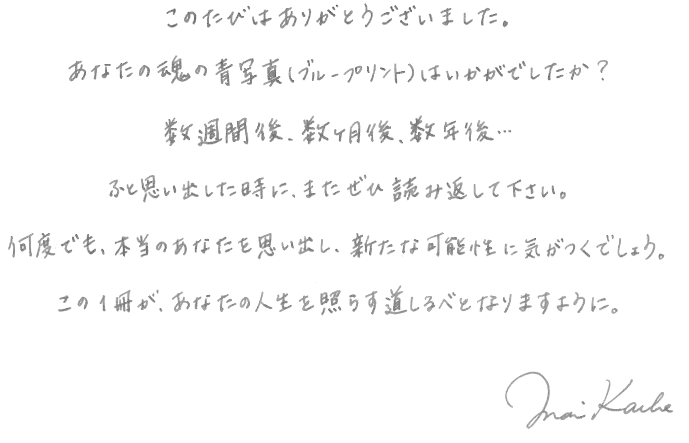 このたびはありがとうございました。
あなたの魂の青写真(ブループリント)はいかがでしたか?
数週間後、数ヶ月後、数年後…
ふと思い出した時に、またぜひ読み返して下さい。
何度でも、本当のあなたを思い出し、新たな可能性に気がつくでしょう。
この1冊が、あなたの人生を照らす道しるべとなりますように。